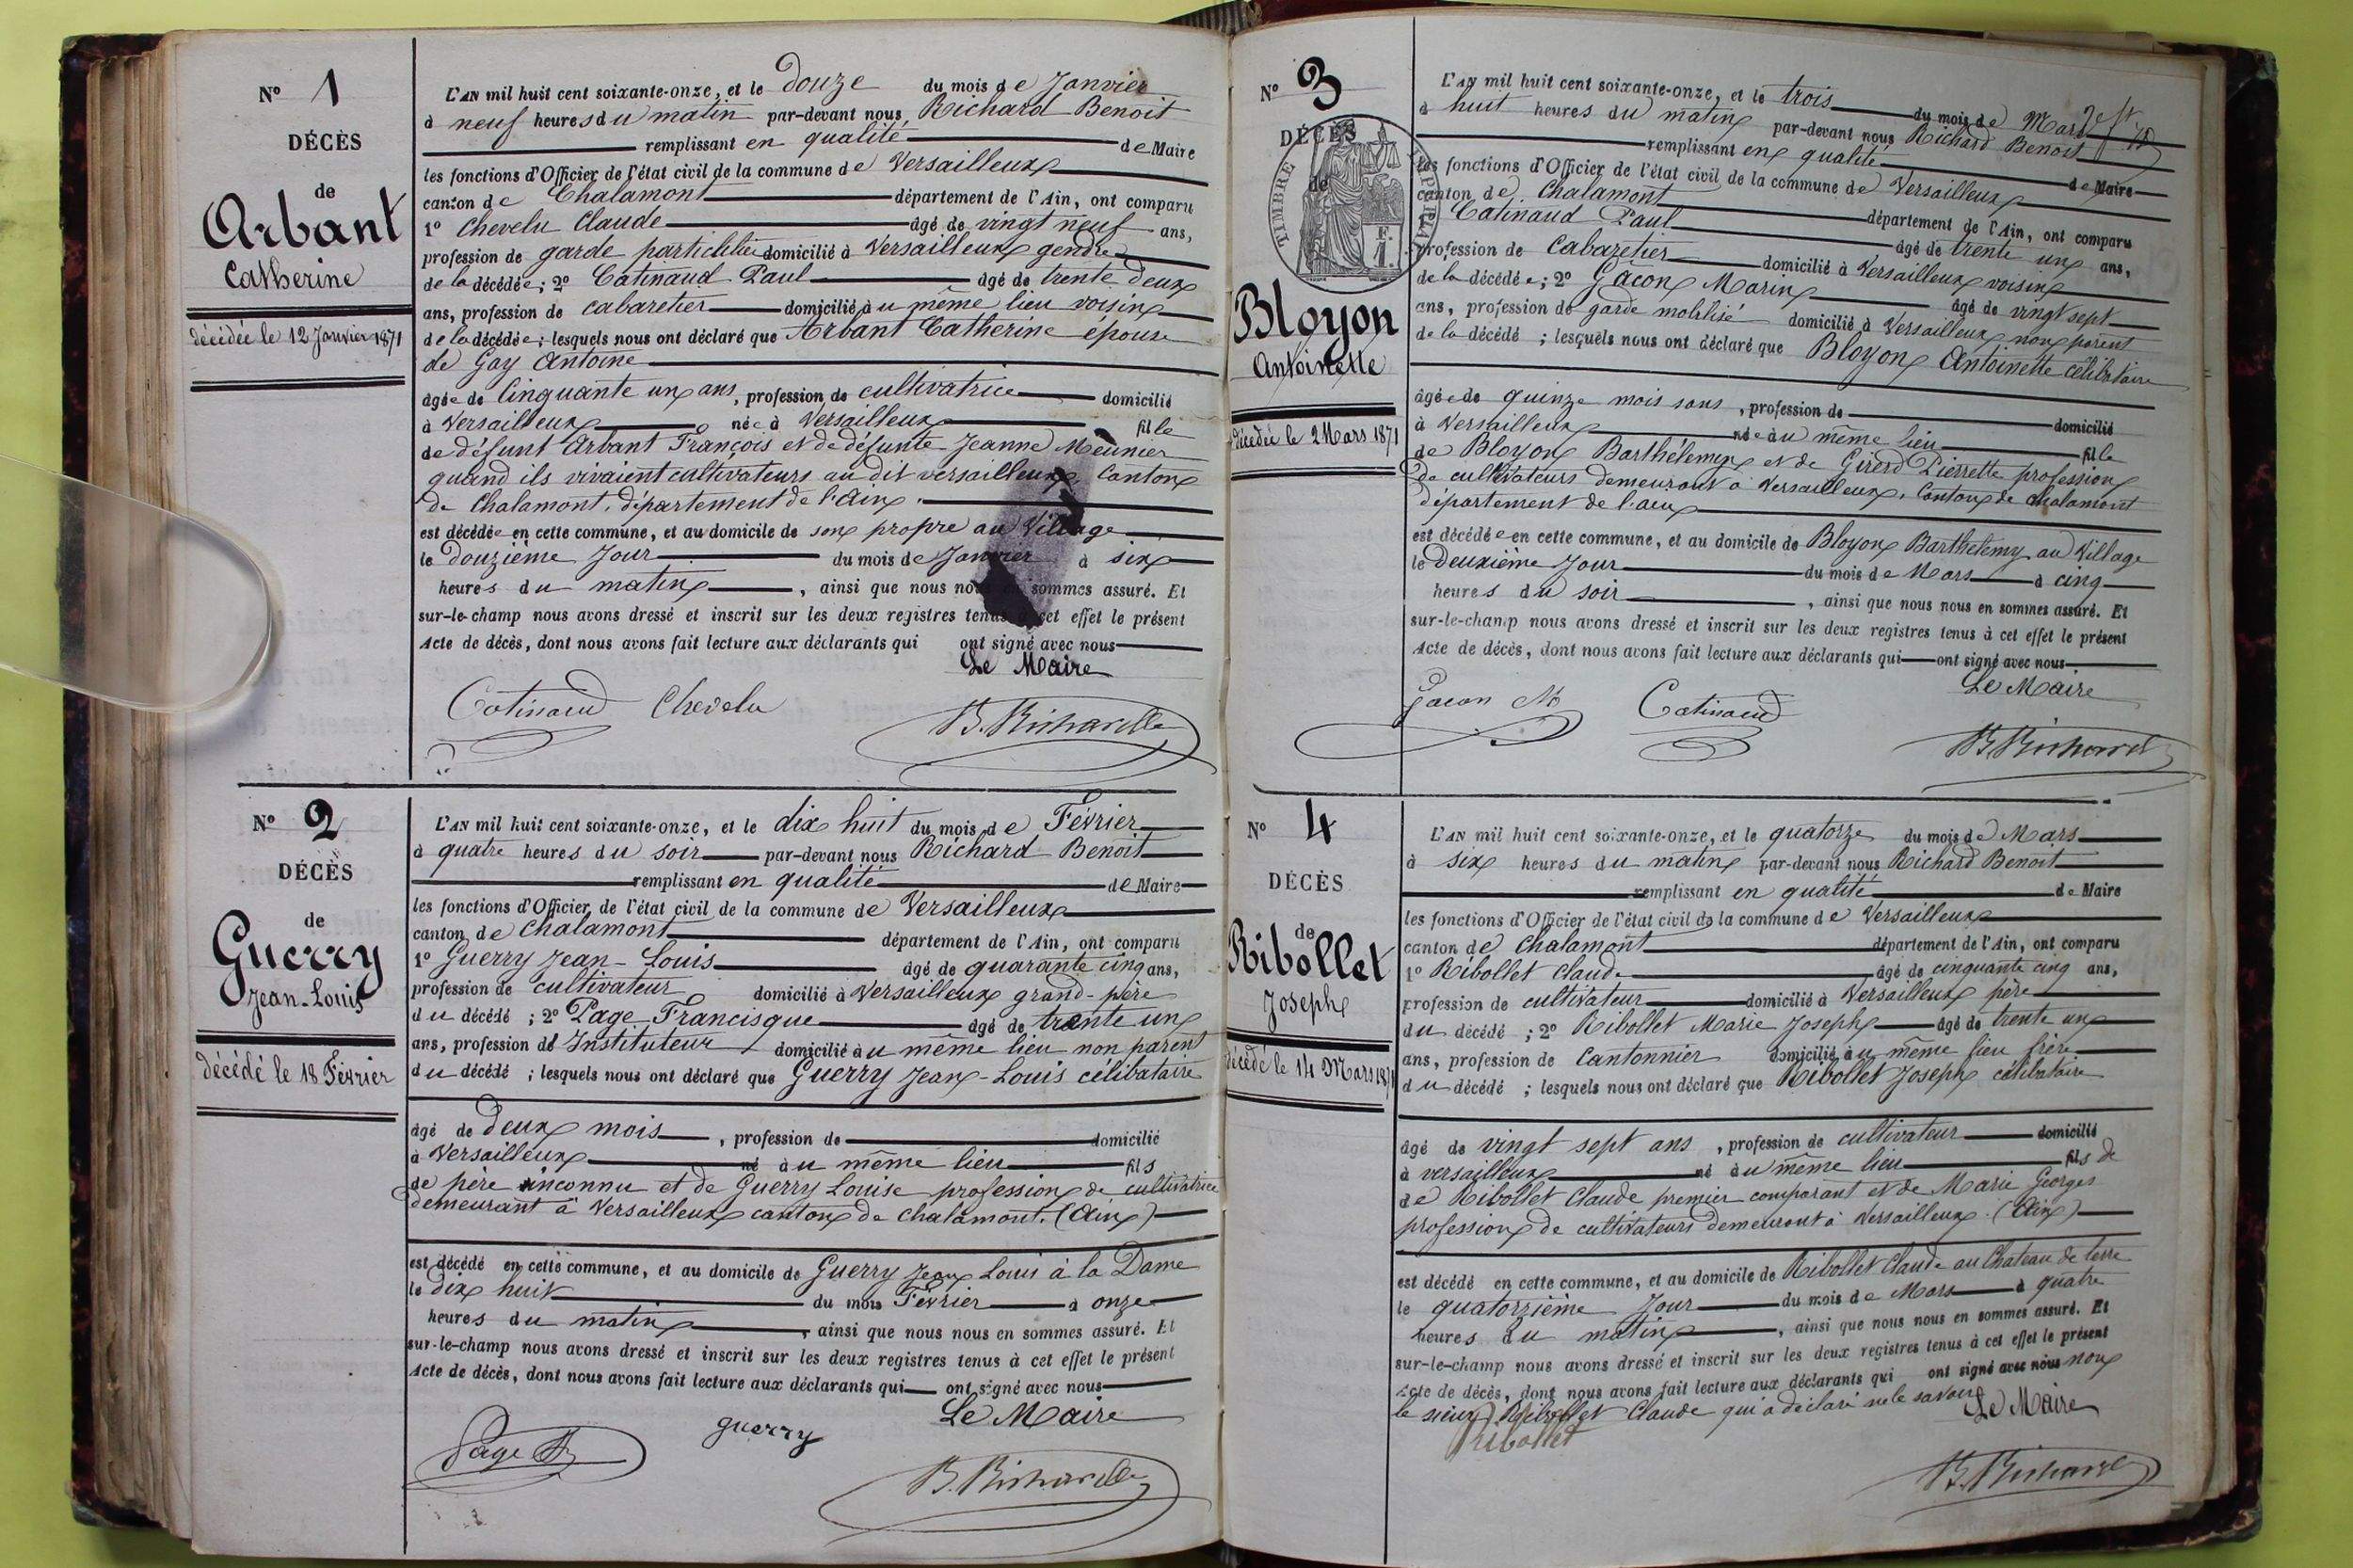 N° 1
DÉCÈS
de
Arbant
Catherine
décédée le 12 Janvier 1871
L'AN mil huit cent soixante-onze, et le douze du mois de Janvier
à neuf heures du matin par-devant nous Richard Benoit
remplissant en qualité de Maire
les fonctions d'Officier de l'état civil de la commune de Versailleux
canton de Chalamont département de l'Ain, ont comparu
1° Chevelu Claude âgé de vingt neuf ans,
profession de garde particulier domicilié à Versailleux gendre
de la décédée; 2° Catinaud Paul âgé de trente deux
ans, profession de cabaretier domicilié au même lieu voisin
de la décédée; lesquels nous ont déclaré que Arbant Catherine épouse
de Gay Antoine
âgée de Cinquante un ans, profession de cultivatrice domicilié
à Versailleux née à Versailleux fille
de défunt Arbant François et de défunte Jeanne Meunier
quand ils vivaient cultivateurs au dit versailleux, Canton
de Chalamont, département de l'ain.
est décédée en cette commune, et au domicile de son propre au Village
le douzième Jour du mois de Janvier à six
heures du matin, ainsi que nous nous en sommes assuré. Et
sur-le-champ nous avons dressé et inscrit sur les deux registres tenus à cet effet le présent
Acte de décès, dont nous avons fait lecture aux déclarants qui ont signé avec nous
Le Maire
Catinaud Chevelu B. Richard
N° 2
DÉCÈS
de
Guerry
Jean-Louis
décédé le 18 Février
L'AN mil huit cent soixante-onze, et le dix huit du mois de Février
à quatre heures du soir par-devant nous Richard Benoit
remplissant en qualité de Maire
les fonctions d'Officier de l'état civil de la commune de Versailleux
canton de Chalamont département de l'Ain, ont comparu
1° Guerry Jean-Louis âgé de quarante cinq ans,
profession de cultivateur domicilié à Versailleux grand-père
du décédé ; 2° Page Francisque âgé de trente un
ans, profession de Instituteur domicilié au même lieu non parent
du décédé ; lesquels nous ont déclaré que Guerry Jean-Louis célibataire
âgé de deux mois, profession de domicilié
à Versailleux né au même lieu fils
de père inconnu et de Guerry Louise profession de cultivatrice
demeurant à Versailleux canton de Chalamont. (Ain)
est décédé en cette commune, et au domicile de Guerry Jean Louis à la Dame
le dix huit du mois Février à onze
heures du matin, ainsi que nous nous en sommes assuré. Et
sur-le-champ nous avons dressé et inscrit sur les deux registres tenus à cet effet le présent
Acte de décès, dont nous avons fait lecture aux déclarants qui ont signé avec nous
Le Maire
Page guerry B. Richard
N° 3
DÉCÈS
de
TIMBRE
Bloyon
Antoinette
décédée le 2 Mars 1871
L'AN mil huit cent soixante-onze, et le trois du mois de Mars
à huit heures du matin par-devant nous Richard Benoit
remplissant en qualité de Maire
les fonctions d'Officier de l'état civil de la commune de Versailleux
canton de Chalamont département de l'Ain, ont comparu
1° Catinaud Paul âgé de trente un ans,
profession de Cabaretier domicilié à Versailleux voisin
de la décédée; 2° Gacon Marin âgé de vingt sept
ans, profession de garde mobilisé domicilié à Versailleux non parent
de la décédé ; lesquels nous ont déclaré que Bloyon Antoinette célibataire
âgée de quinze mois sans, profession de domicilié
à Versailleux née au même lieu fille
de Bloyon Barthélemy et de Girerd Pierrette profession
de cultivateurs demeurant à Versailleux, Canton de chalamont
département de l'ain
est décédée en cette commune, et au domicile de Bloyon Barthelemy au Village
le Deuxième Jour du mois de Mars à cinq
heures du soir, ainsi que nous nous en sommes assuré. Et
sur-le-champ nous avons dressé et inscrit sur les deux registres tenus à cet effet le présent
Acte de décès, dont nous avons fait lecture aux déclarants qui ont signé avec nous
Le Maire
Gacon M Catinaud B. Richard
N° 4
DÉCÈS
de
Ribollet
Joseph
décédé le 14 Mars 1871
L'AN mil huit cent soixante-onze, et le quatorze du mois de Mars
à six heures du matin par-devant nous Richard Benoit
remplissant en qualité de Maire
les fonctions d'Officier de l'état civil de la commune de Versailleux
canton de Chalamont département de l'Ain, ont comparu
1° Ribollet Claude âgé de cinquante cinq ans,
profession de cultivateur domicilié à Versailleux père
du décédé ; 2° Ribollet Marie Joseph âgé de trente un
ans, profession de Cantonnier domicilié au même lieu frère
du décédé ; lesquels nous ont déclaré que Ribollet Joseph célibataire
âgé de vingt sept ans, profession de cultivateur domicilié
à versailleux né au même lieu fils de
de Ribollet Claude premier comparant et de Marie Georges
profession de cultivateurs demeurant à Versailleux. (Ain)
est décédé en cette commune, et au domicile de Ribollet Claude au Chateau de terre
le quatorzième Jour du mois de Mars à quatre
heures du matin, ainsi que nous nous en sommes assuré. Et
sur-le-champ nous avons dressé et inscrit sur les deux registres tenus à cet effet le présent
Acte de décès, dont nous avons fait lecture aux déclarants qui ont signé avec nous non
le sieur Ribollet Claude qui a déclaré ne le savoir Le Maire
Ribollet
B. Richard